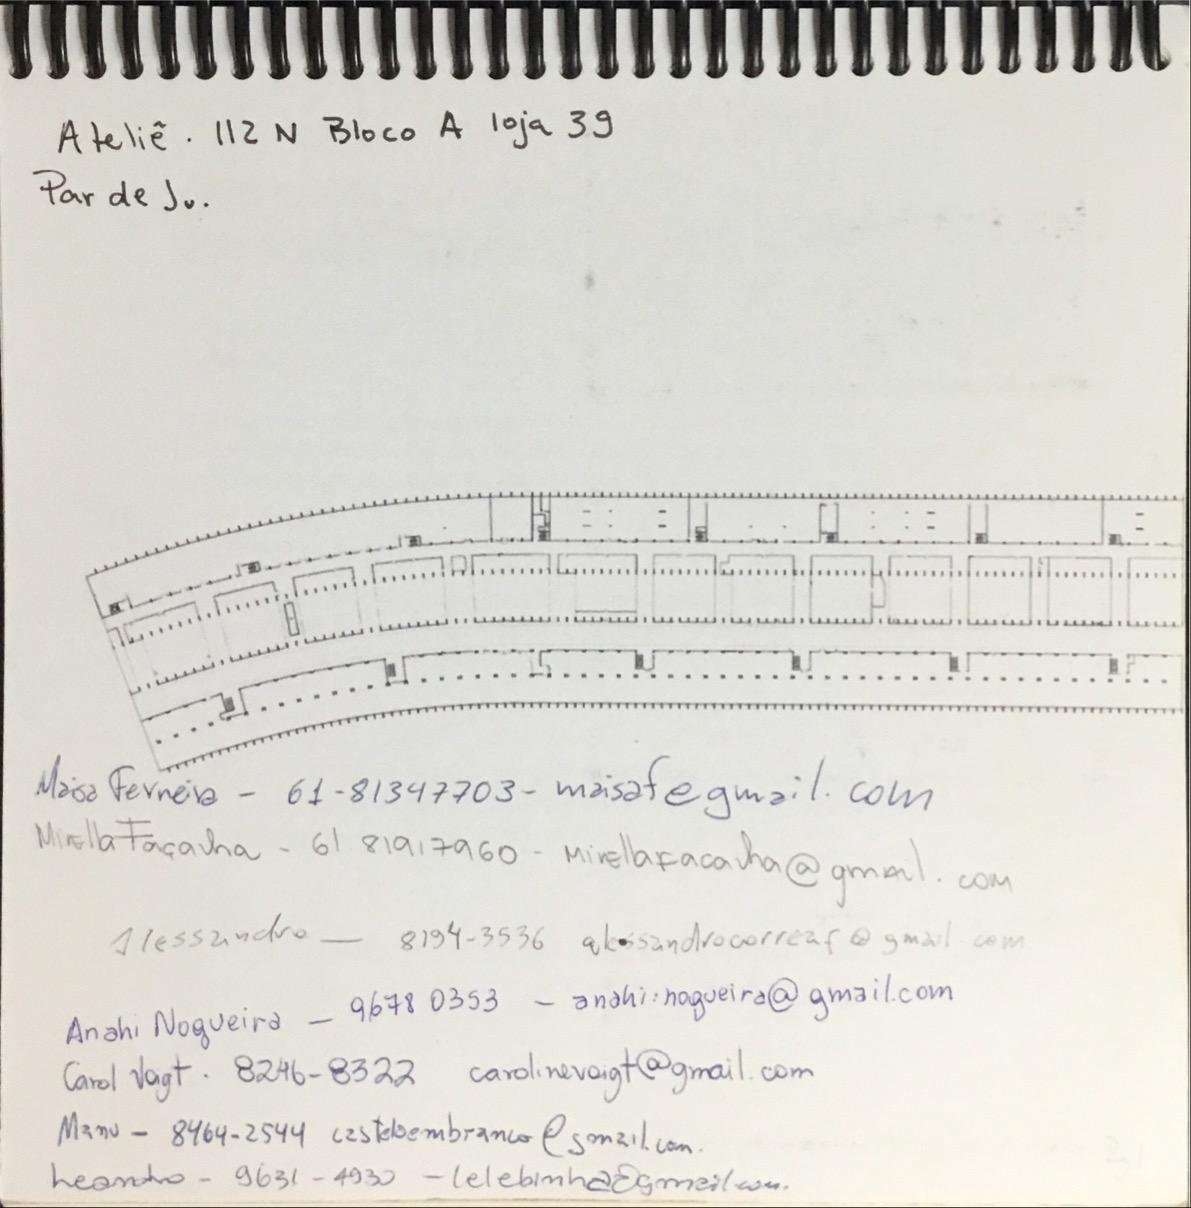 Ateliê . 112 N Bloco A loja 39
Par de Ju.
Maisa Ferreira - 61-81347703 - maisaf@gmail.com
Mirella Façanha - 61 81917960 - mirellafacanha@gmail.com
Alessandro — 8194-3536 alessandrocorreaf@gmail.com
Anahi Nogueira — 9678 0353 - anahi.nogueira@gmail.com
Carol Voigt . 8246-8322 carolinevoigt@gmail.com
Manu - 8464-2544 casteloembranco@gmail.com.
Leandro - 9631-4930 - lelebinha@gmail.com.